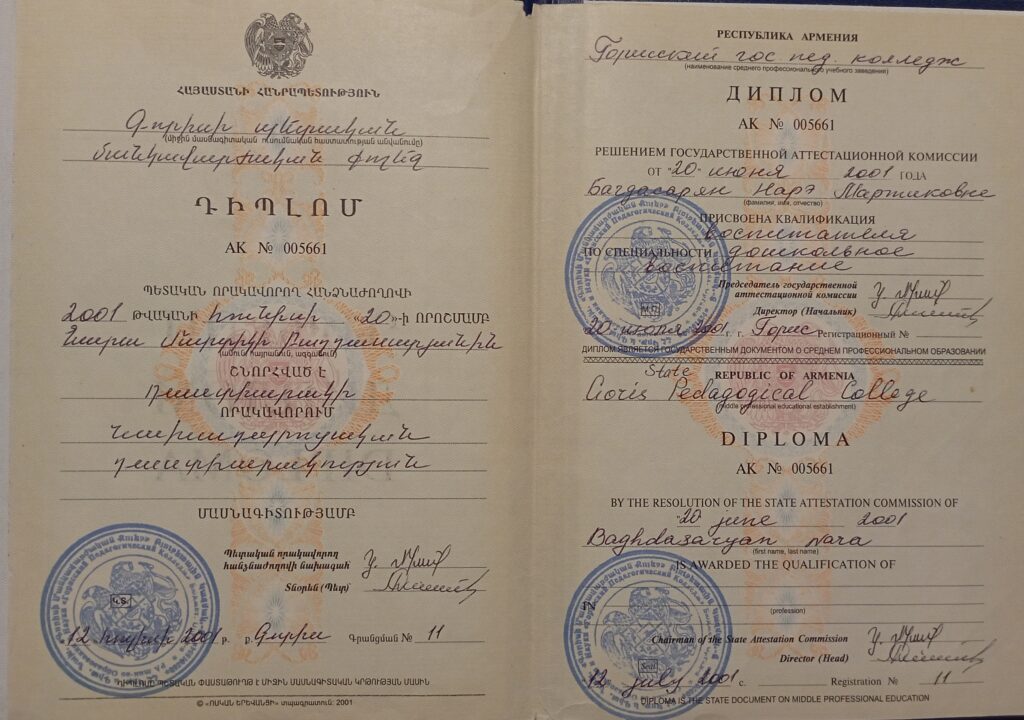 ՀԱՅԱՍՏԱՆԻ ՀԱՆՐԱՊԵՏՈՒԹՅՈՒՆ
Գորիսի պետական
(միջին մասնագիտական ուսումնական հաստատության անվանումը)
մանկավարժական քոլեջ
ԴԻՊԼՈՄ
АК № 005661
ՊԵՏԱԿԱՆ ՈՐԱԿԱՎՈՐՈՂ ՀԱՆՁՆԱԺՈՂՈՎԻ
2001 ԹՎԱԿԱՆԻ հունիսի «20»-ի ՈՐՈՇՄԱՄԲ
Նարա Մարտիկի Բաղդասարյանին
(անուն, հայրանուն, ազգանուն)
ՇՆՈՐՀՎԱԾ Է
դաստիարակի
ՈՐԱԿԱՎՈՐՈՒՄ
Նախադպրոցական
դաստիարակություն
ՄԱՍՆԱԳԻՏՈՒԹՅԱՄԲ
Պետական որակավորող
հանձնաժողովի նախագահ
Տնօրեն (Պետ)
12 հուլիսի 2001 թ. ք. Գորիս Գրանցման № 11
ԴԻՊԼՈՄԸ ՊԵՏԱԿԱՆ ՓԱՍՏԱԹՈՒՂԹ Է ՄԻՋԻՆ ՄԱՍՆԱԳԻՏԱԿԱՆ ԿՐԹՈՒԹՅԱՆ ՄԱՍԻՆ
© «ՈՍԿԱՆ ԵՐԵՎԱՆՑԻ» տպագրատուն: 2001
РЕСПУБЛИКА АРМЕНИЯ
Горисский гос пед. колледж
(наименование среднего профессионального учебного заведения)
ДИПЛОМ
АК № 005661
РЕШЕНИЕМ ГОСУДАРСТВЕННОЙ АТТЕСТАЦИОННОЙ КОМИССИИ
ОТ "20" июня 2001 ГОДА
Багдасарян Нарэ Мартиковне
(фамилия, имя, отчество)
ПРИСВОЕНА КВАЛИФИКАЦИЯ
воспитателя
ПО СПЕЦИАЛЬНОСТИ дошкольное
воспитание
Председатель государственной
аттестационной комиссии
Директор (Начальник)
20 июня 2001 г. г. Горис Регистрационный №
ДИПЛОМ ЯВЛЯЕТСЯ ГОСУДАРСТВЕННЫМ ДОКУМЕНТОМ О СРЕДНЕМ ПРОФЕССИОНАЛЬНОМ ОБРАЗОВАНИИ
REPUBLIC OF ARMENIA
State
Goris Pedagogical College
(middle professional educational establishment)
DIPLOMA
АК № 005661
BY THE RESOLUTION OF THE STATE ATTESTATION COMMISSION OF
"20 june 2001
Baghdasaryan Nara
(first name, last name)
IS AWARDED THE QUALIFICATION OF
IN
(profession)
Chairman of the State Attestation Commission
Director (Head)
12 july 2001 c. Registration № 11
DIPLOMA IS THE STATE DOCUMENT ON MIDDLE PROFESSIONAL EDUCATION